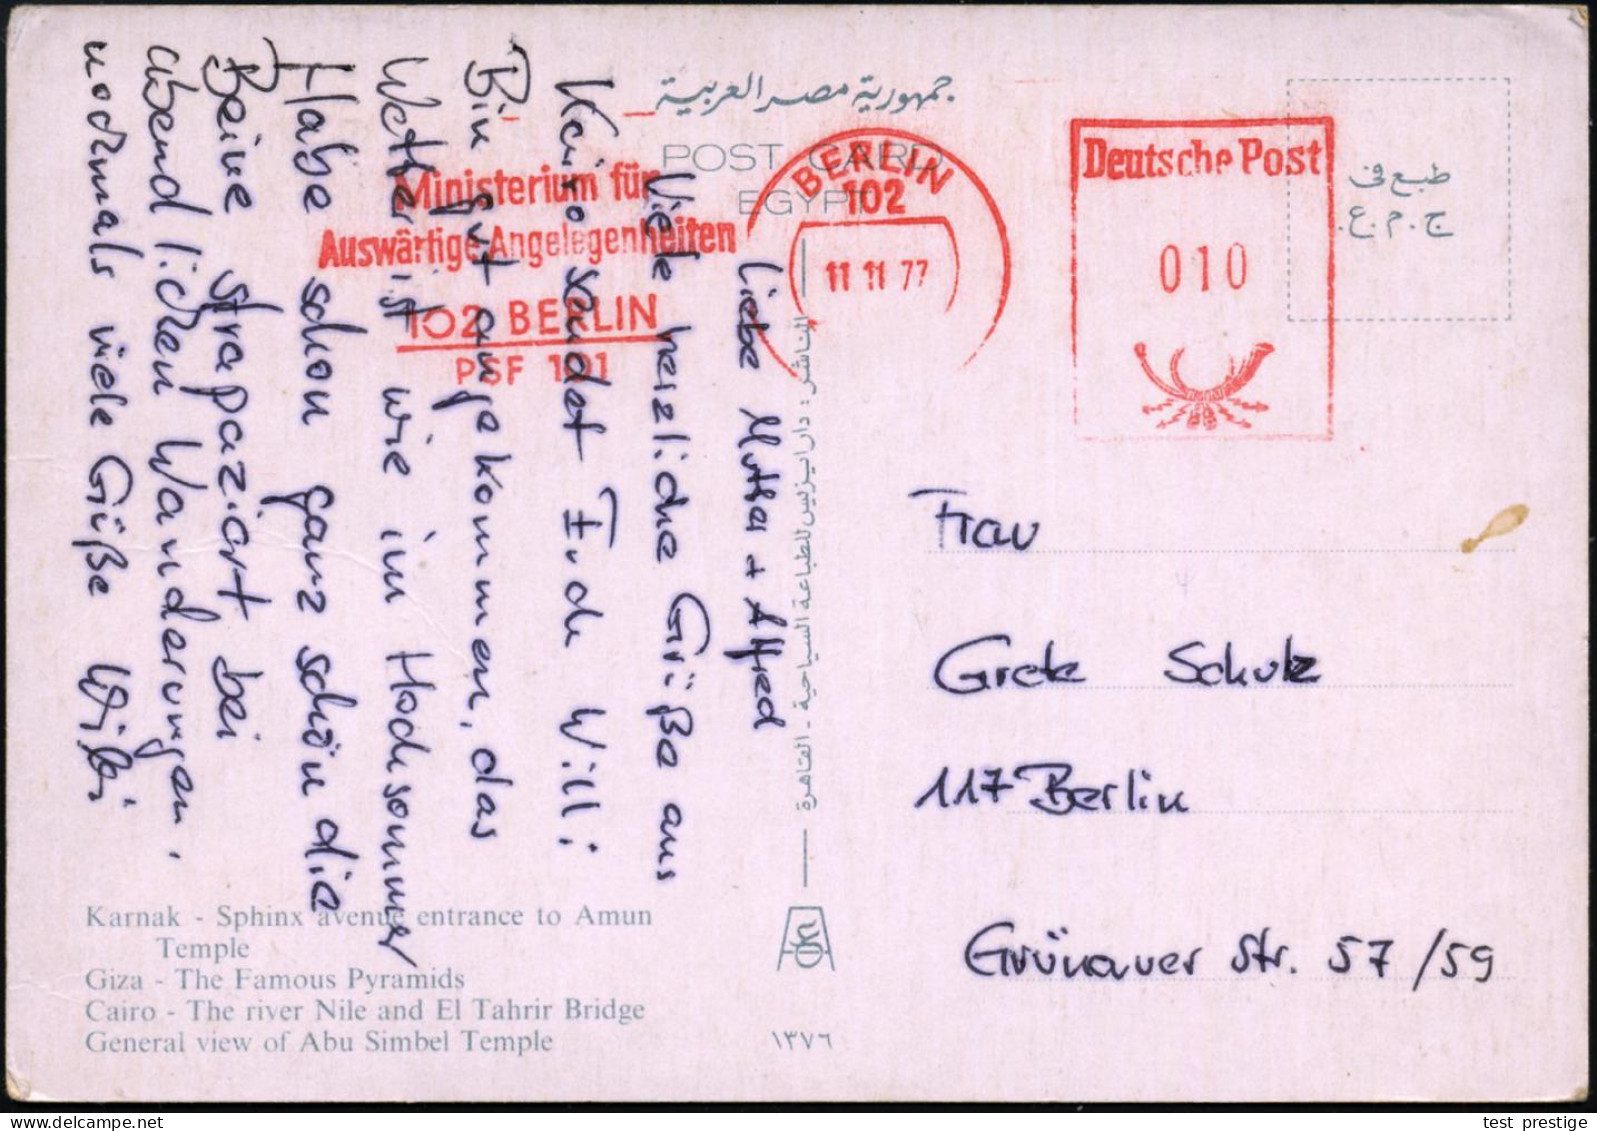 جمهورية مصر العربية
POST CARD
EGYPT
Ministerium für
Auswärtige Angelegenheiten
102 BERLIN
PSF 101
BERLIN
102
11 11 77
Deutsche Post
010
طبع فى
ج.م.ع.
Liebe Mutter + Alfred
Viele herzliche Grüße aus
Kairo sendet Euch Willi
Bin gut angekommen, das
Wetter ist wie im Hochsommer
Habe schon ganz schön die
Beine strapaziert bei
abendlichen Wanderungen.
nochmals viele Grüße Willi
الناشر : دار ايزيس للطباعة السياحية - القاهرة
Frau
Grete Schulz
117 Berlin
Grünauer Str. 57/59
Karnak - Sphinx avenue entrance to Amun
Temple
Giza - The Famous Pyramids
Cairo - The river Nile and El Tahrir Bridge
General view of Abu Simbel Temple
١٣٧٦
test prestige